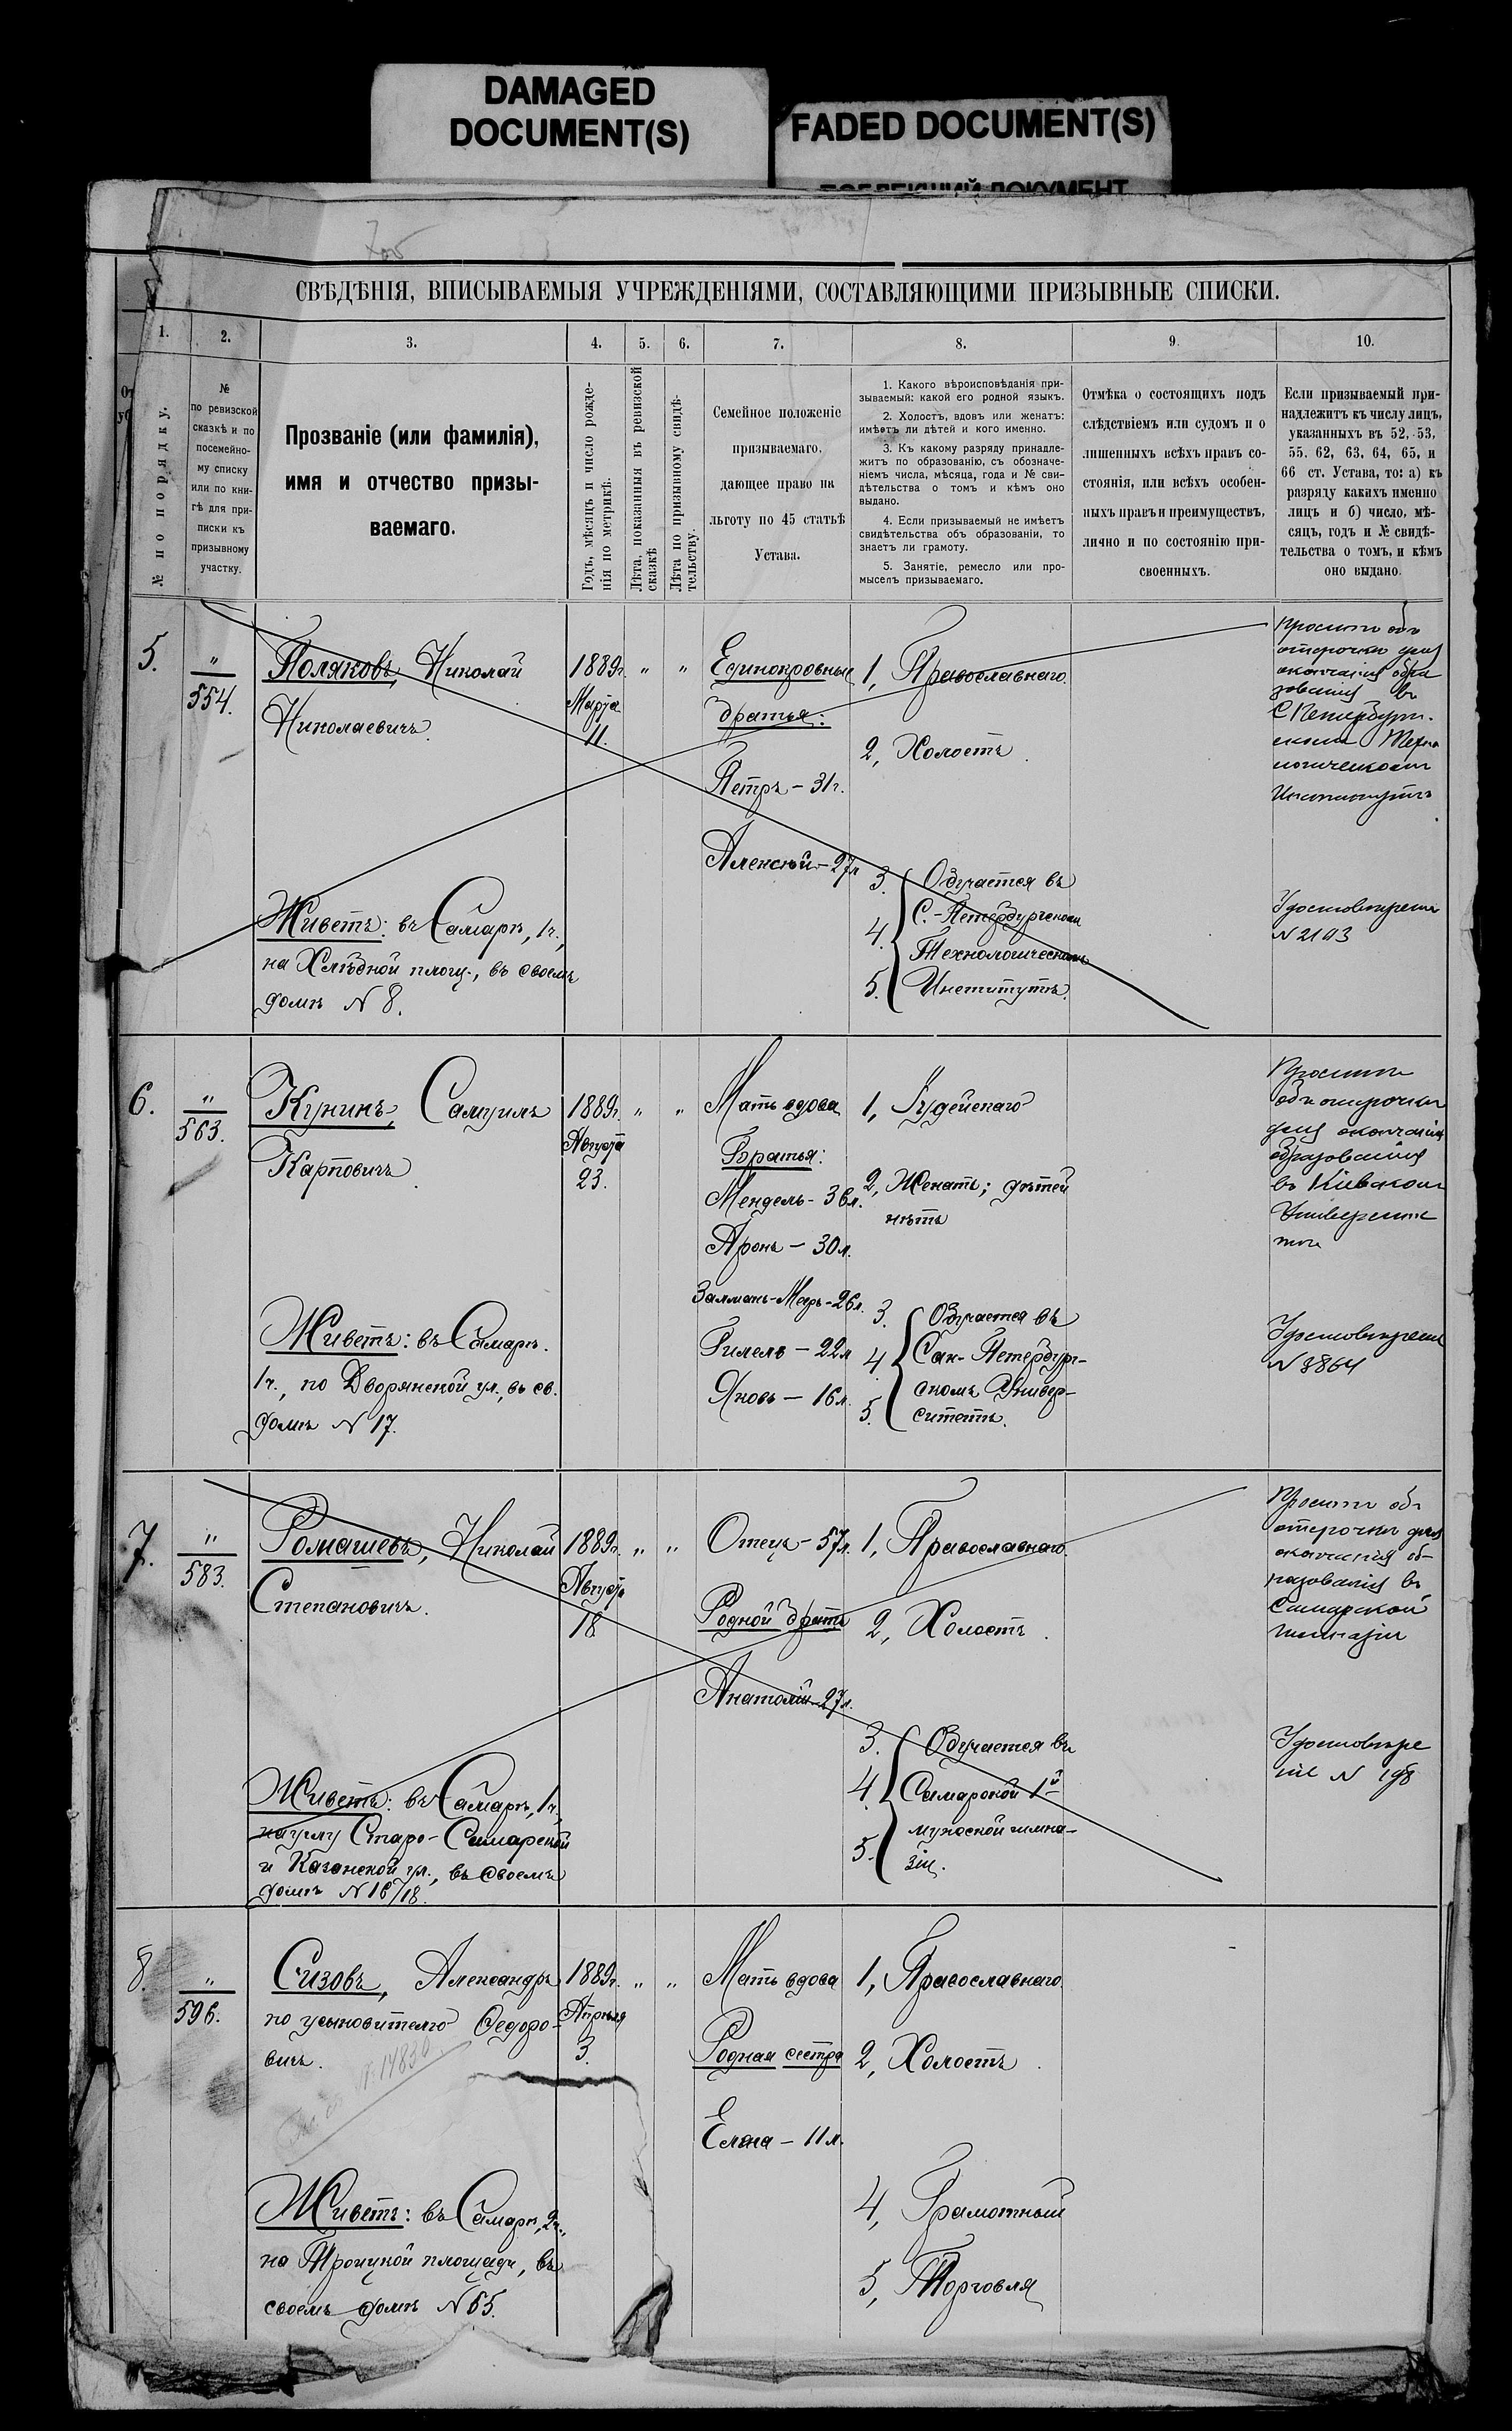 DAMAGED
DOCUMENT(S)
FADED DOCUMENT(S)
СВѢДѢНІЯ, ВПИСЫВАЕМЫЯ УЧРЕЖДЕНІЯМИ, СОСТАВЛЯЮЩИМИ ПРИЗЫВНЫЕ СПИСКИ.
1. 2. 3. 4. 5. 6. 7. 8. 9. 10.
№ по порядку.
№
по ревизской
сказкѣ и по
посемейно-
му списку
или по кни-
гѣ для при-
писки къ
призывному
участку.
Прозваніе (или фамилія),
имя и отчество призы-
ваемаго.
Годъ, мѣсяцъ и число рожде-
нія по метрикѣ.
Лѣта, показанныя въ ревизской
сказкѣ
Лѣта по призывному свидѣ-
тельству.
Семейное положеніе
призываемаго,
дающее право на
льготу по 45 статьѣ
Устава.
1. Какого вѣроисповѣданія при-
зываемый: какой его родной языкъ.
2. Холостъ, вдовъ или женатъ:
имѣетъ ли дѣтей и кого именно.
3. Къ какому разряду принадле-
житъ по образованію, съ обозначе-
ніемъ числа, мѣсяца, года и № сви-
дѣтельства о томъ и кѣмъ оно
выдано.
4. Если призываемый не имѣетъ
свидѣтельства объ образованіи, то
знаетъ ли грамоту.
5. Занятіе, ремесло или про-
мыселъ призываемаго.
Отмѣка о состоящихъ подъ
слѣдствіемъ или судомъ и о
лишенныхъ всѣхъ правъ со-
стоянія, или всѣхъ особен-
ныхъ правъ и преимуществъ,
лично и по состоянію при-
своенныхъ.
Если призываемый при-
надлежитъ къ числу лицъ,
указанныхъ въ 52, 53,
55. 62, 63, 64, 65, и
66 ст. Устава, то: а) къ
разряду какихъ именно
лицъ и б) число, мѣ-
сяцъ, годъ и № свидѣ-
тельства о томъ, и кѣмъ
оно выдано.
5.
"
554.
Поляковъ, Николай
Николаевичъ.
Живетъ: въ Самарѣ, 1 ч.,
на Хлѣбной площ., въ своемъ
домѣ № 8.
1889г.
Марта
11.
" "
Единокровные
братья:
Петръ – 31 г.
Алексѣй – 27 л.
1, Православнаго.
2, Холостъ.
3. Обучается въ
4. С.-Петербургскомъ
Технологическомъ
5. Институтѣ.
Проситъ объ
отсрочки для
окончанія обра
зованія въ
С Петербург.
скомъ Техно
логическомъ
Институтѣ
Удостовѣреніе
№ 2193
6.
"
563.
Кунинъ, Самуилъ
Карповичъ.
Живетъ: въ Самарѣ.
1 ч., по Дворянской ул., въ св.
домѣ № 17.
1889г.
Августа
23.
" "
Мать вдова
Братья:
Мендель – 36 л.
Аронъ – 30 л.
Залманъ-Меръ – 26 л.
Гилель – 22 л
Яковъ – 16 л.
1, Іудейскаго
2, Женатъ; дѣтей
нѣтъ
3. Обучается въ
4. Сан-Петербург-
скомъ Универ-
5. ситетѣ.
Проситъ
объ отсрочки
для окончанія
образованія
въ Кіевскомъ
Университе
тѣ
Удостовѣреніе
№ 3864
7.
"
583.
Ромашевъ, Николай
Степановичъ.
Живетъ: въ Самарѣ, 1 ч.
на углу Старо-Самарской
и Казанской ул., въ своемъ
домѣ № 16/18.
1889г.
Августа
18
" "
Отецъ – 57 л.
Родной братъ
Анатолій – 27 л.
1, Православнаго.
2, Холостъ.
3. Обучается въ
4. Самарской 1й
мужской гимна-
5. зіи.
Проситъ объ
отсрочки для
окончанія об-
разованія въ
Самарской
гимназіи
Удостовѣре
ніе № 198
8.
"
596.
Сизовъ, Александръ
по усыновителю Ѳедоро-
вичъ.
№ 14830
Живетъ: въ Самарѣ, 2 ч.,
на Троицкой площади, въ
своемъ домѣ № 65.
1889г.
Апрѣля
3.
" "
Мать вдова
Родная сестра
Елена – 11 л.
1, Православнаго
2, Холостъ.
4, Грамотный
5, Торговля